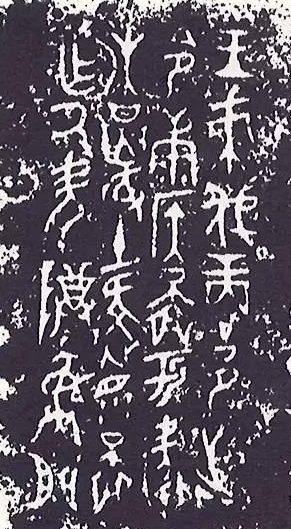 王朿伐商邑𢓊
令康侯啚于衛
𤔲土眔啚
乍氒考尊彝